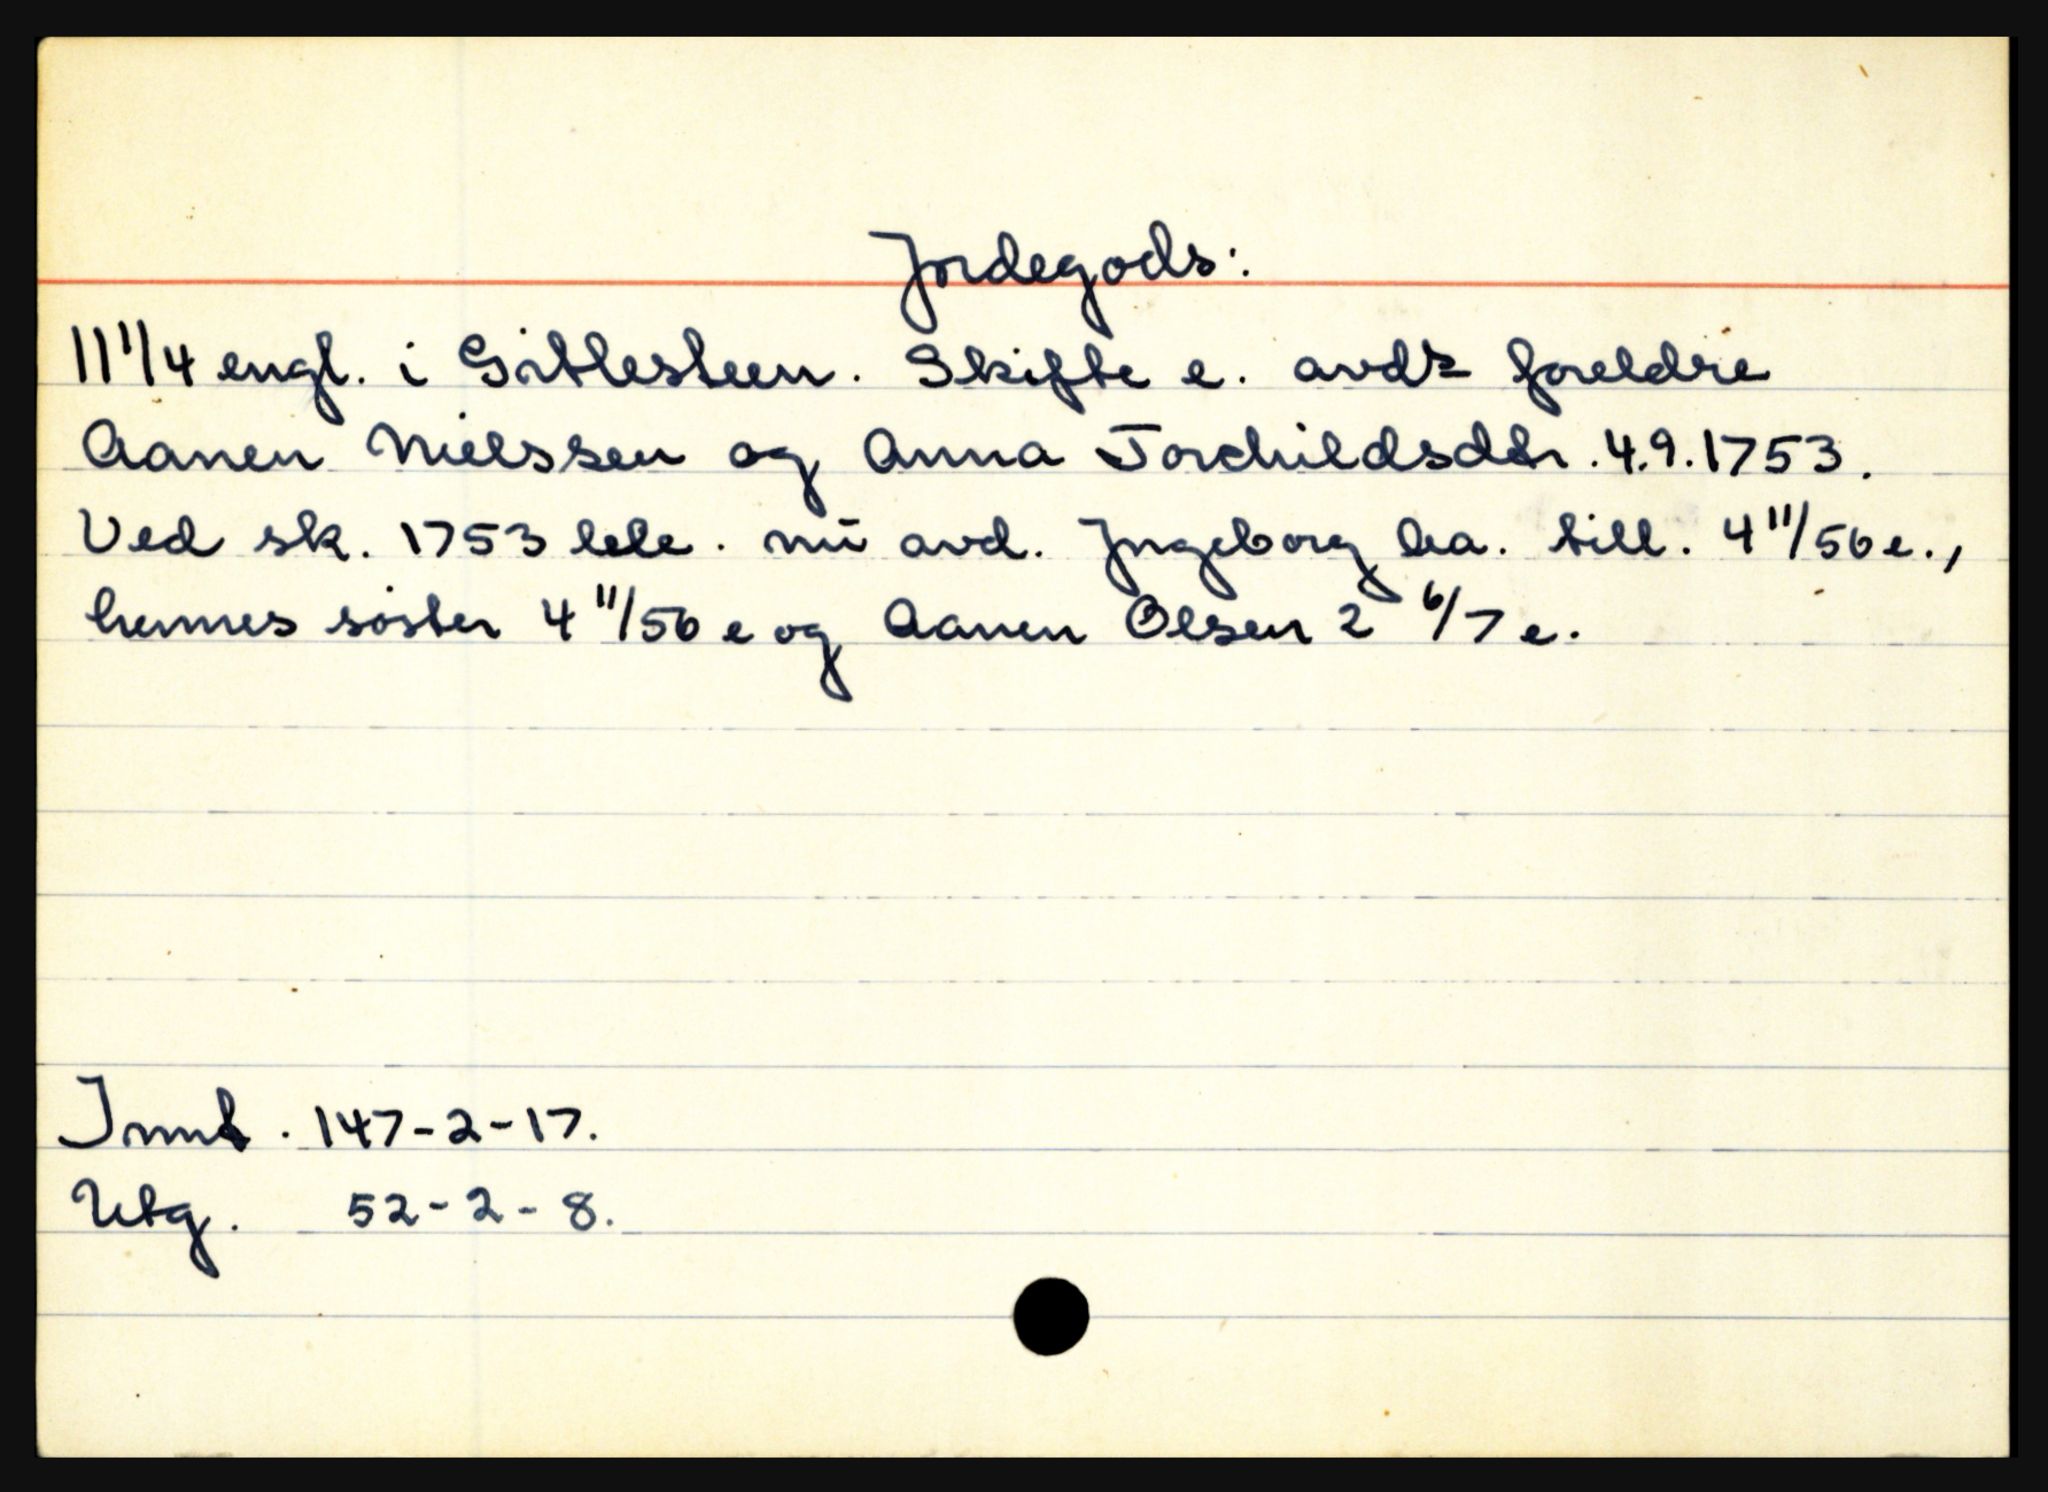 Jordegods:
11 1/4 engl. i Gitlesteen. Skifte e. avds foreldre
Aanen Nielssen og Anna Torchildsdtr. 4.9.1753.
Ved sk. 1753 ble nu avd. Ingeborg ha. till. 4 11/56 e.,
hennes søster 4 11/56 e og Aanen Olsen 2 6/7 e.
Innt. 147-2-17.
Utg. 52-2-8.